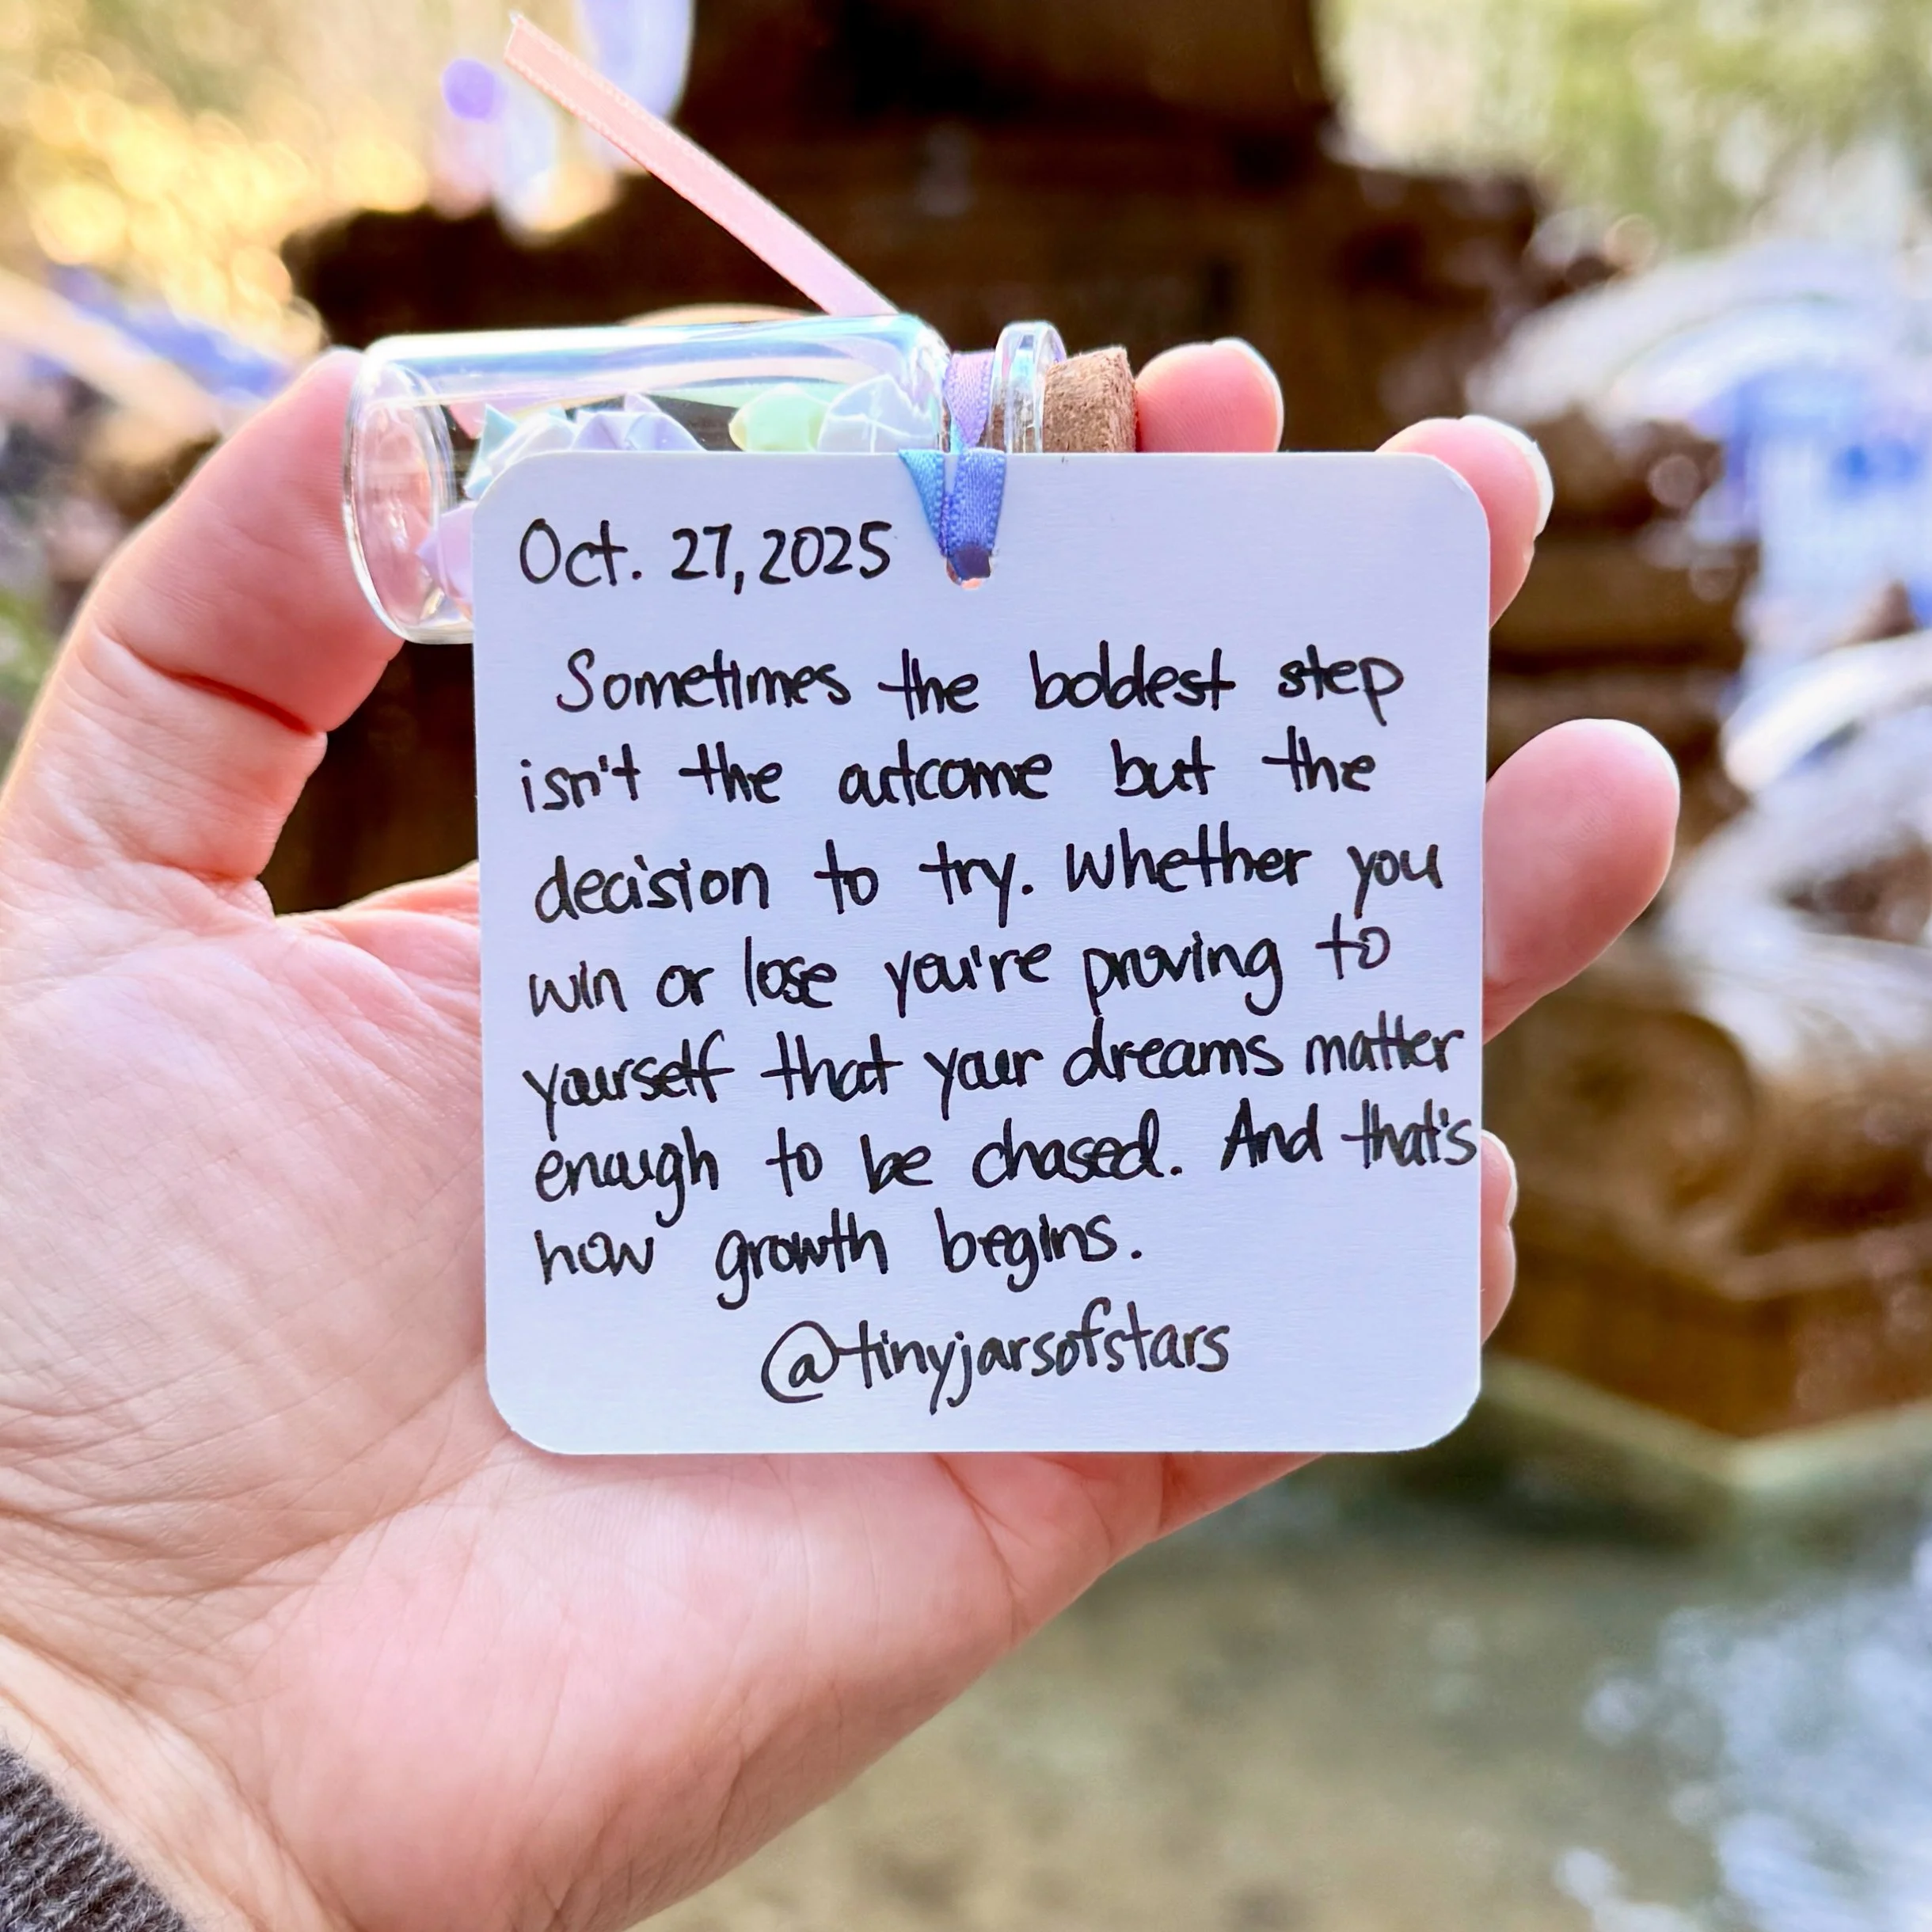 Oct. 27, 2025
Sometimes the boldest step
isn't the outcome but the
decision to try. Whether you
win or lose you're proving to
yourself that your dreams matter
enough to be chased. And that's
how growth begins.
@tinyjarsofstars